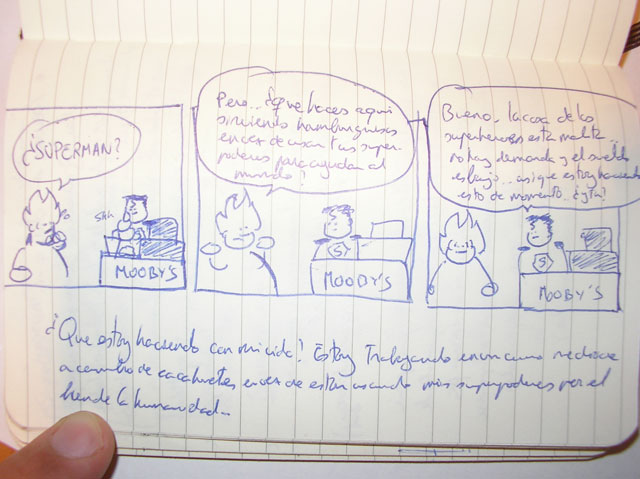 ¿SUPERMAN?
Shh
MOOBY'S
Pero... ¿Que haces aqui
sirviendo hamburguesas
en vez de usar tus super-
poderes para ayudar al
mundo?
S
MOOBY'S
Bueno.. la cosa de los
superheroes esta malita..
no hay demanda y el sueldo
es bajo.. asi que estoy haciendo
esto de momento.. ¿y tu?
S
MOOBY'S
¿Que estoy haciendo con mi vida? Estoy Trabajando en un curro mediocre
a cambio de cacahuetes en vez de estar usando mis superpoderes por el
bien de la humanidad...